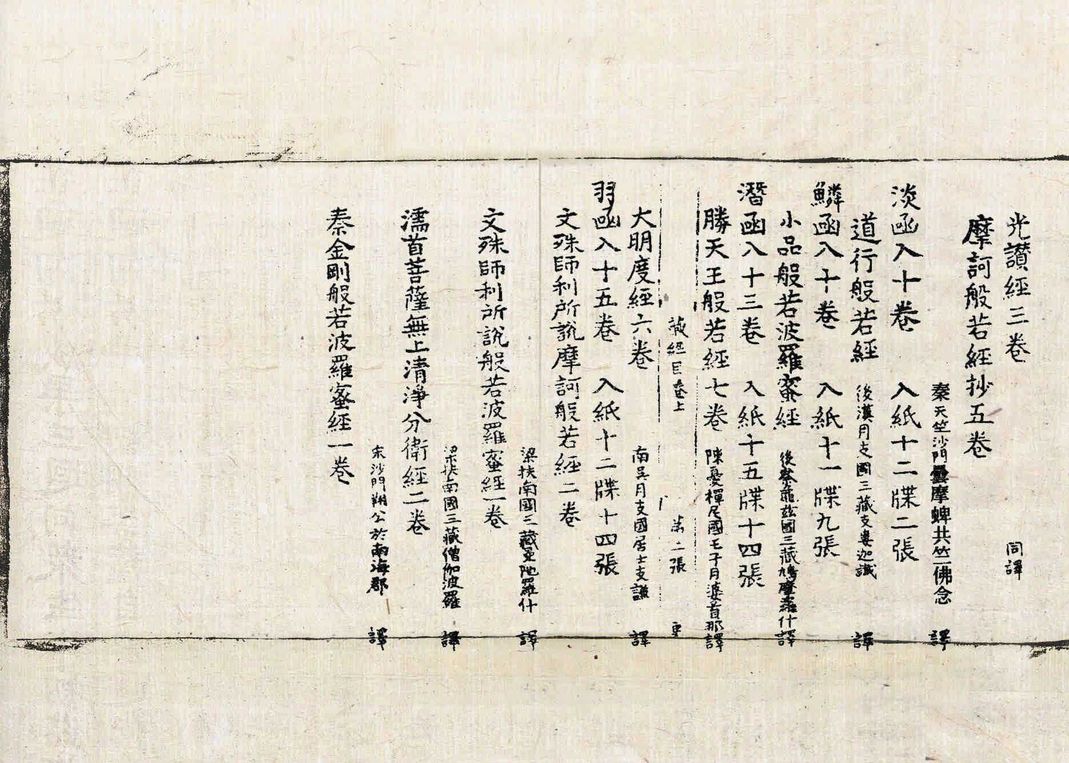 光讃經三卷 同譯
摩訶般若經抄五卷
秦天竺沙門曇摩蜱共竺佛念 譯
淡凾入十卷 入紙十二牒二張
道行般若經 後漢月支國三藏支婁迦讖 譯
鱗凾入十卷 入紙十一牒九張
小品般若波羅蜜經 後秦龜茲國三藏鳩摩羅什譯
潛凾入十三卷 入紙十五牒十四張
勝天王般若經七卷 陳憂禪尼國王子月婆首那譯
藏經目卷上 第二張
大明度經六卷 南吳月支國居士支謙 譯
羽凾入十五卷 入紙十二牒十四張
文殊師利所説摩訶般若經二卷
梁扶南國三藏曼陁羅什 譯
文殊師利所說般若波羅蜜經一卷
梁扶南國三藏僧伽波羅 譯
濡首菩薩無上清淨分衛經二卷
宋沙門翔公於南海郡 譯
秦金剛般若波羅蜜經一卷